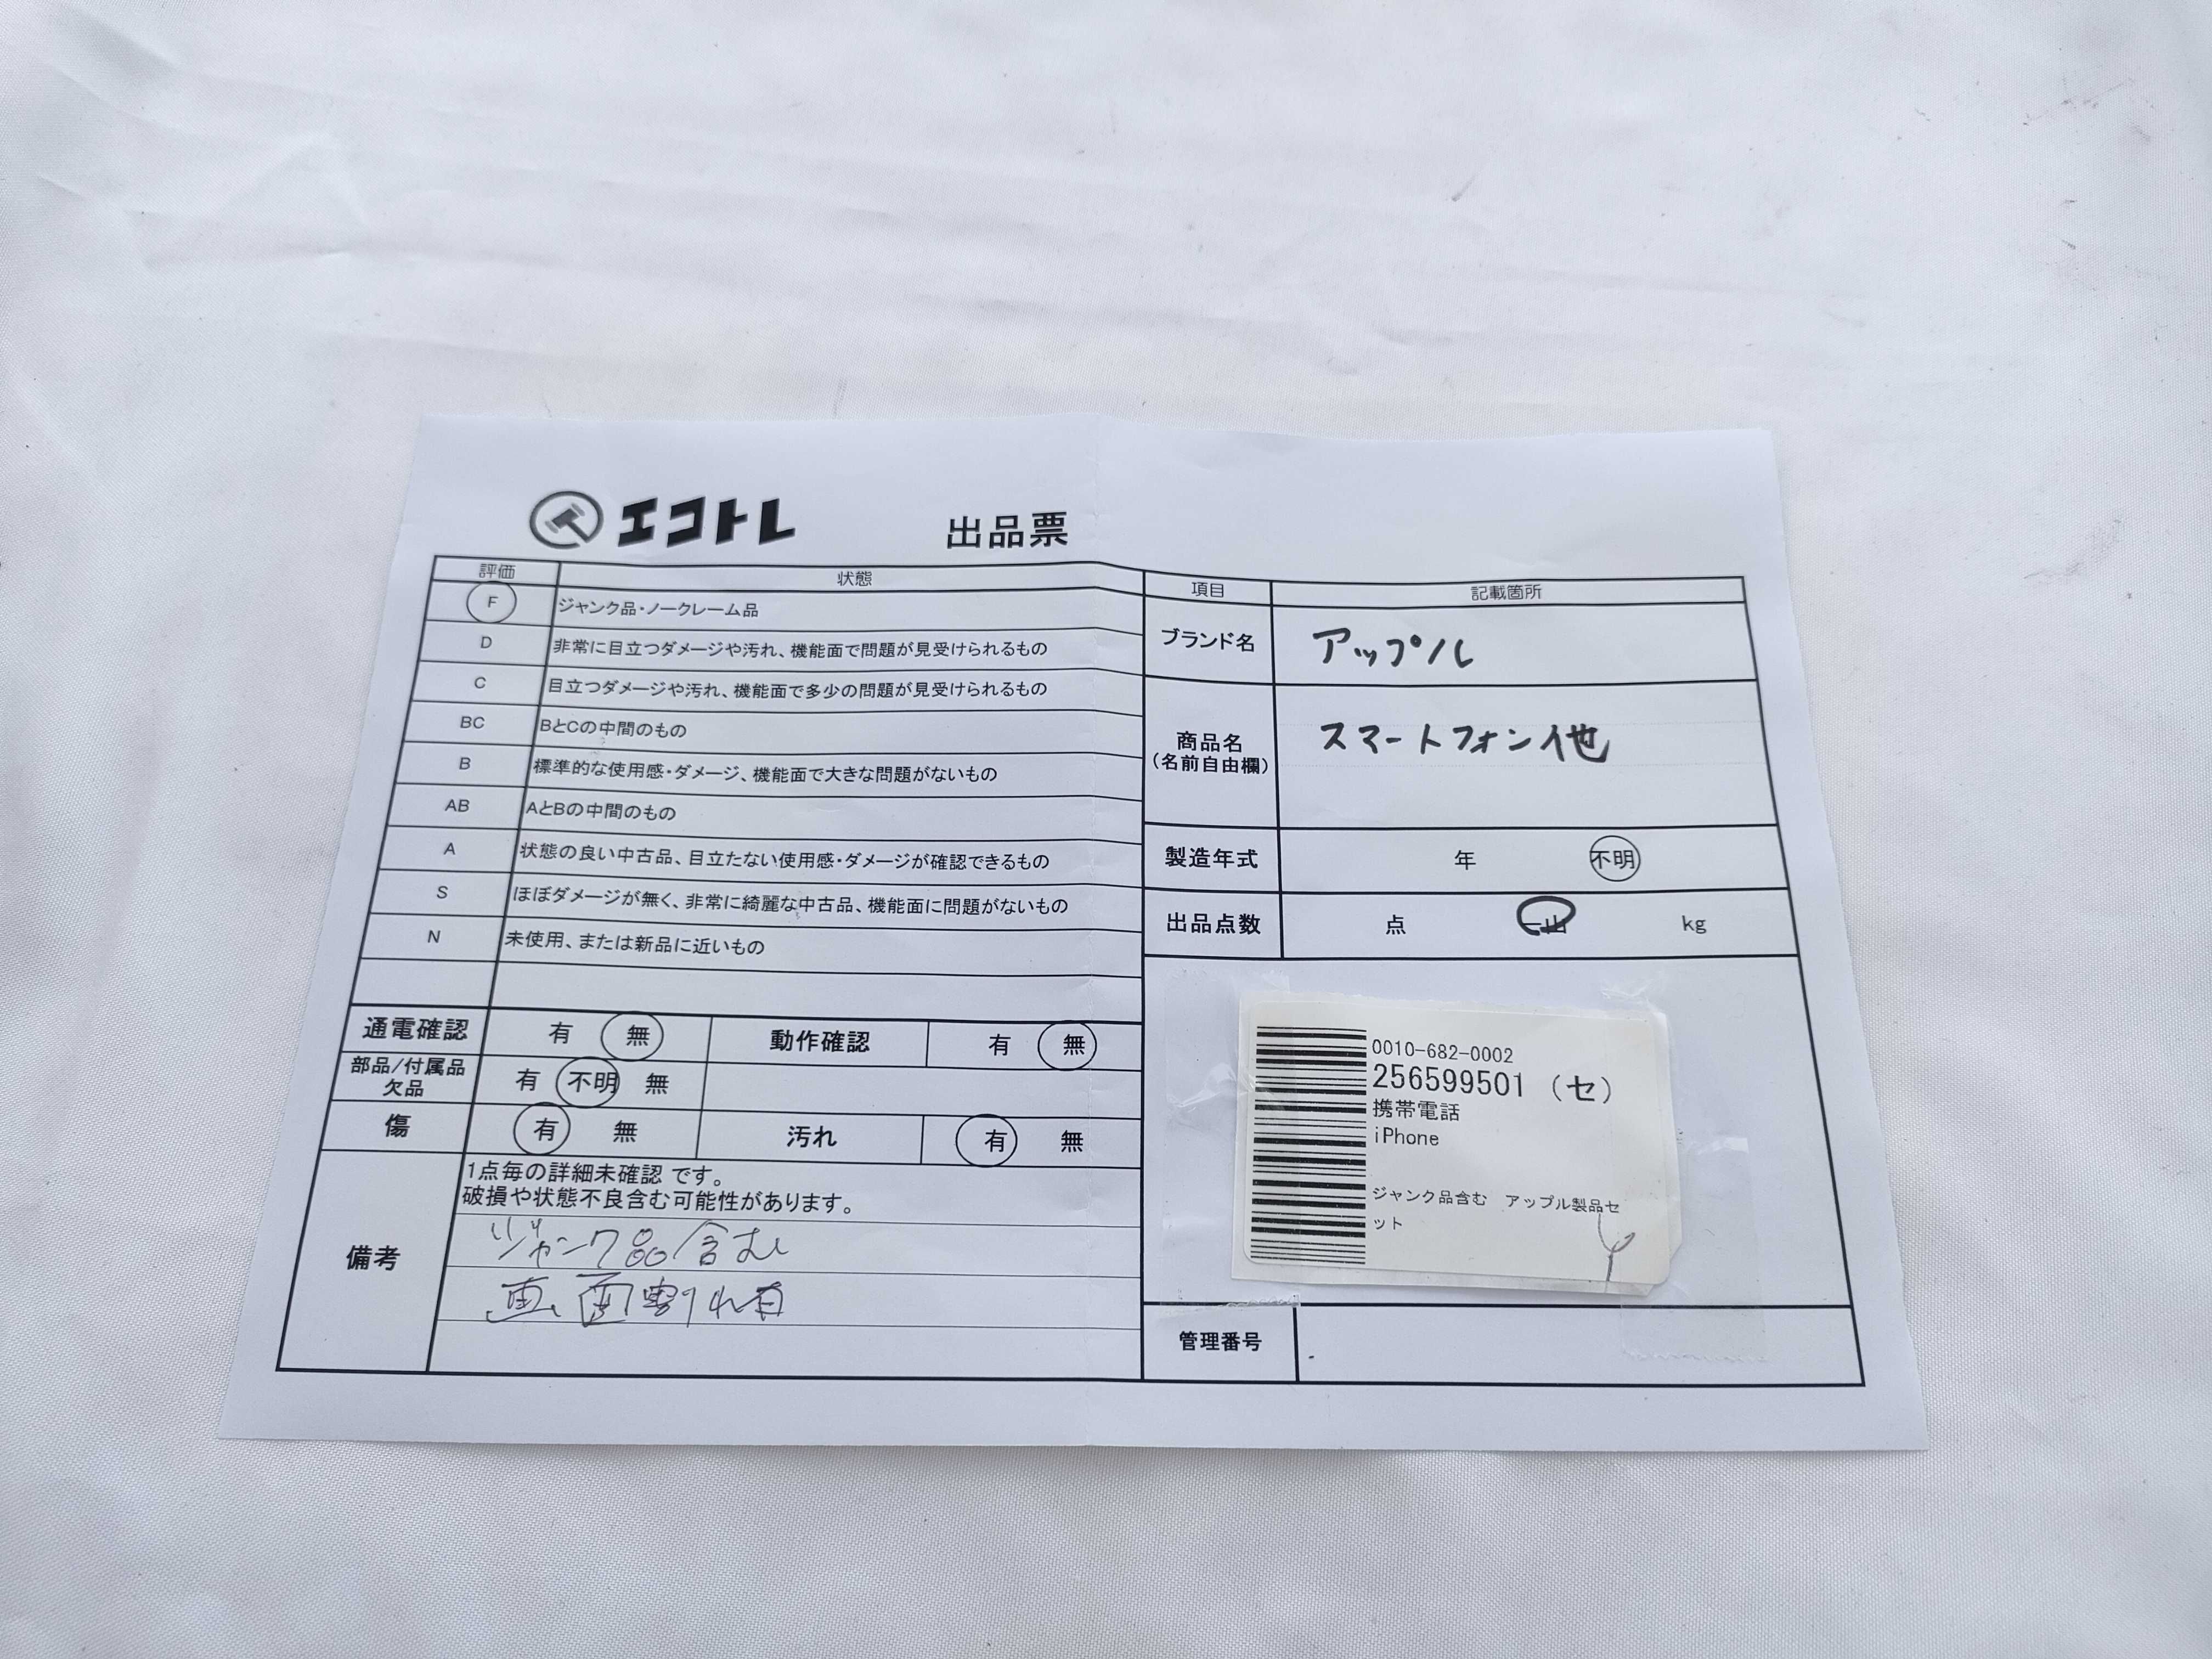 エコトレ 出品票
評価 状態
F ジャンク品・ノークレーム品
D 非常に目立つダメージや汚れ、機能面で問題が見受けられるもの
C 目立つダメージや汚れ、機能面で多少の問題が見受けられるもの
BC BとCの中間のもの
B 標準的な使用感・ダメージ、機能面で大きな問題がないもの
AB AとBの中間のもの
A 状態の良い中古品、目立たない使用感・ダメージが確認できるもの
S ほぼダメージが無く、非常に綺麗な中古品、機能面に問題がないもの
N 未使用、または新品に近いもの
通電確認 有 無 動作確認 有 無
部品/付属品
欠品 有 不明 無
傷 有 無 汚れ 有 無
備考
1点毎の詳細未確認 です。
破損や状態不良含む可能性があります。
ジャンク品含む
画面割れ有
項目 記載箇所
ブランド名 アップル
商品名
(名前自由欄)
スマートフォン他
製造年式 年 不明
出品点数 点 一山 kg
0010-682-0002
256599501 (セ)
携帯電話
iPhone
ジャンク品含む アップル製品セ
ット
管理番号